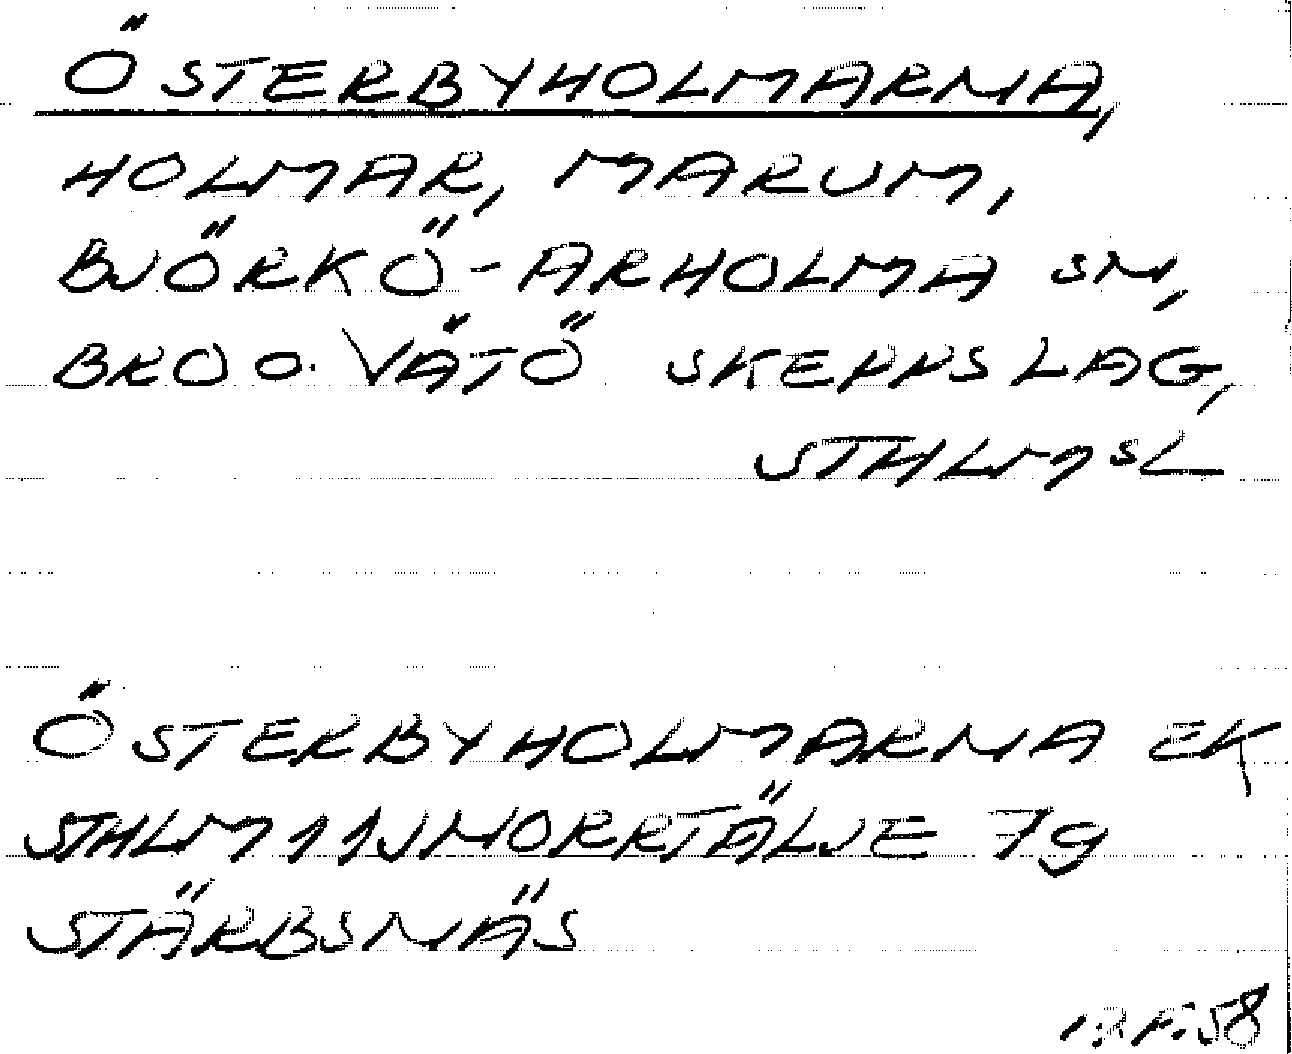 ÖSTERBYHOLMARNA,
HOLMAR, MARUM,
BJÖRKÖ-ARHOLMA SN,
BRO O. VÄTÖ SKEPPSLAG,
STHLMSL
ÖSTERBYHOLMARNA EK
STHLM 11J NORRTÄLJE 7g
STÄRBSNÄS